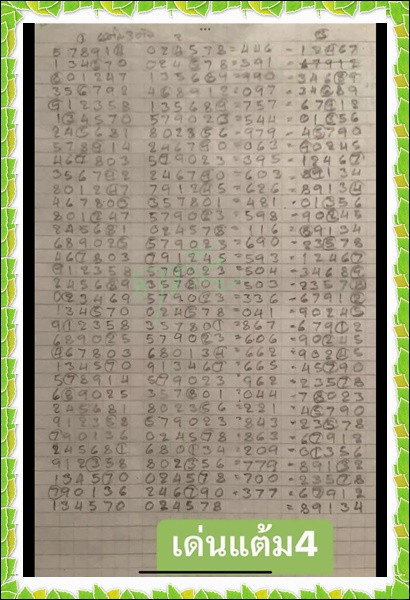 578914 024578=446-12467
134570 024578=591-67912
801247 135689=990-34689
356792 468912=097-34689
912358 135689=757-67912
134570 579023=544-01356
245681 802356=979-45790
578914 246790=063-90245
467803 579023=395-12467
356792 246790=603-89134
801247 791245=626-89134
467803 357801=481-01356
801247 579023=598-90245
245681 024578=116-89134
689025 579023=690-23578
467803 791245=593-12467
912358 579023=504-34689
245681 357801=503-23578
023469 579023=336-67912
134570 024578=041-90245
912358 357801=867-67912
689025 579023=606-90245
467803 680134=662-90245
134570 913467=665-45790
578914 579023=962-23578
689025 357801=044-78023
245681 802356=221-45790
912358 579023=843-23578
790136 024578=863-67912
245681 680134=209-01356
912358 802356=779-89134
134570 024578=700-23578
790136 246790=377-67912
134570 024578 =89134
เด่นแต้ม4